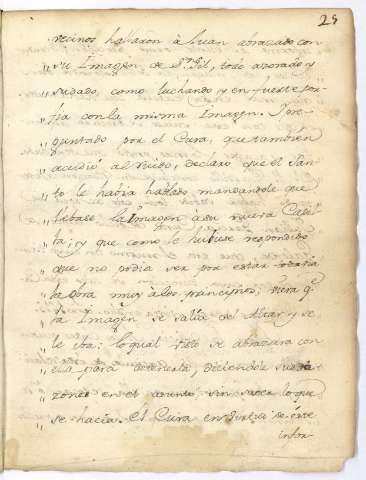 25
vecinos hallaron à Juan abrazado con
„ su Imagen de Sn. Gil, todo azorado y
„ sudado, como luchando y en fuerte por-
„ fia con la misma Imagen. Y pre-
„ guntado por el Cura, que tambien
„ acudió al ruido, declaró que el San-
„ to le habia hablado mandandole que
„ llebase la Imagen à su nueva Casi-
„ ta; y que como le hubiese respondido
„ que no podia ser por estar todavia
„ la obra muy à los principios; viera q.
„ la Imagen se salia del Altar y se
„ le iba: lo qual visto se abrazara con
„ ella para detenerla, diciendole sus ra-
„ zones en el asunto sin saber lo que
„ se hacia. El Cura en virtud de éste
infor-